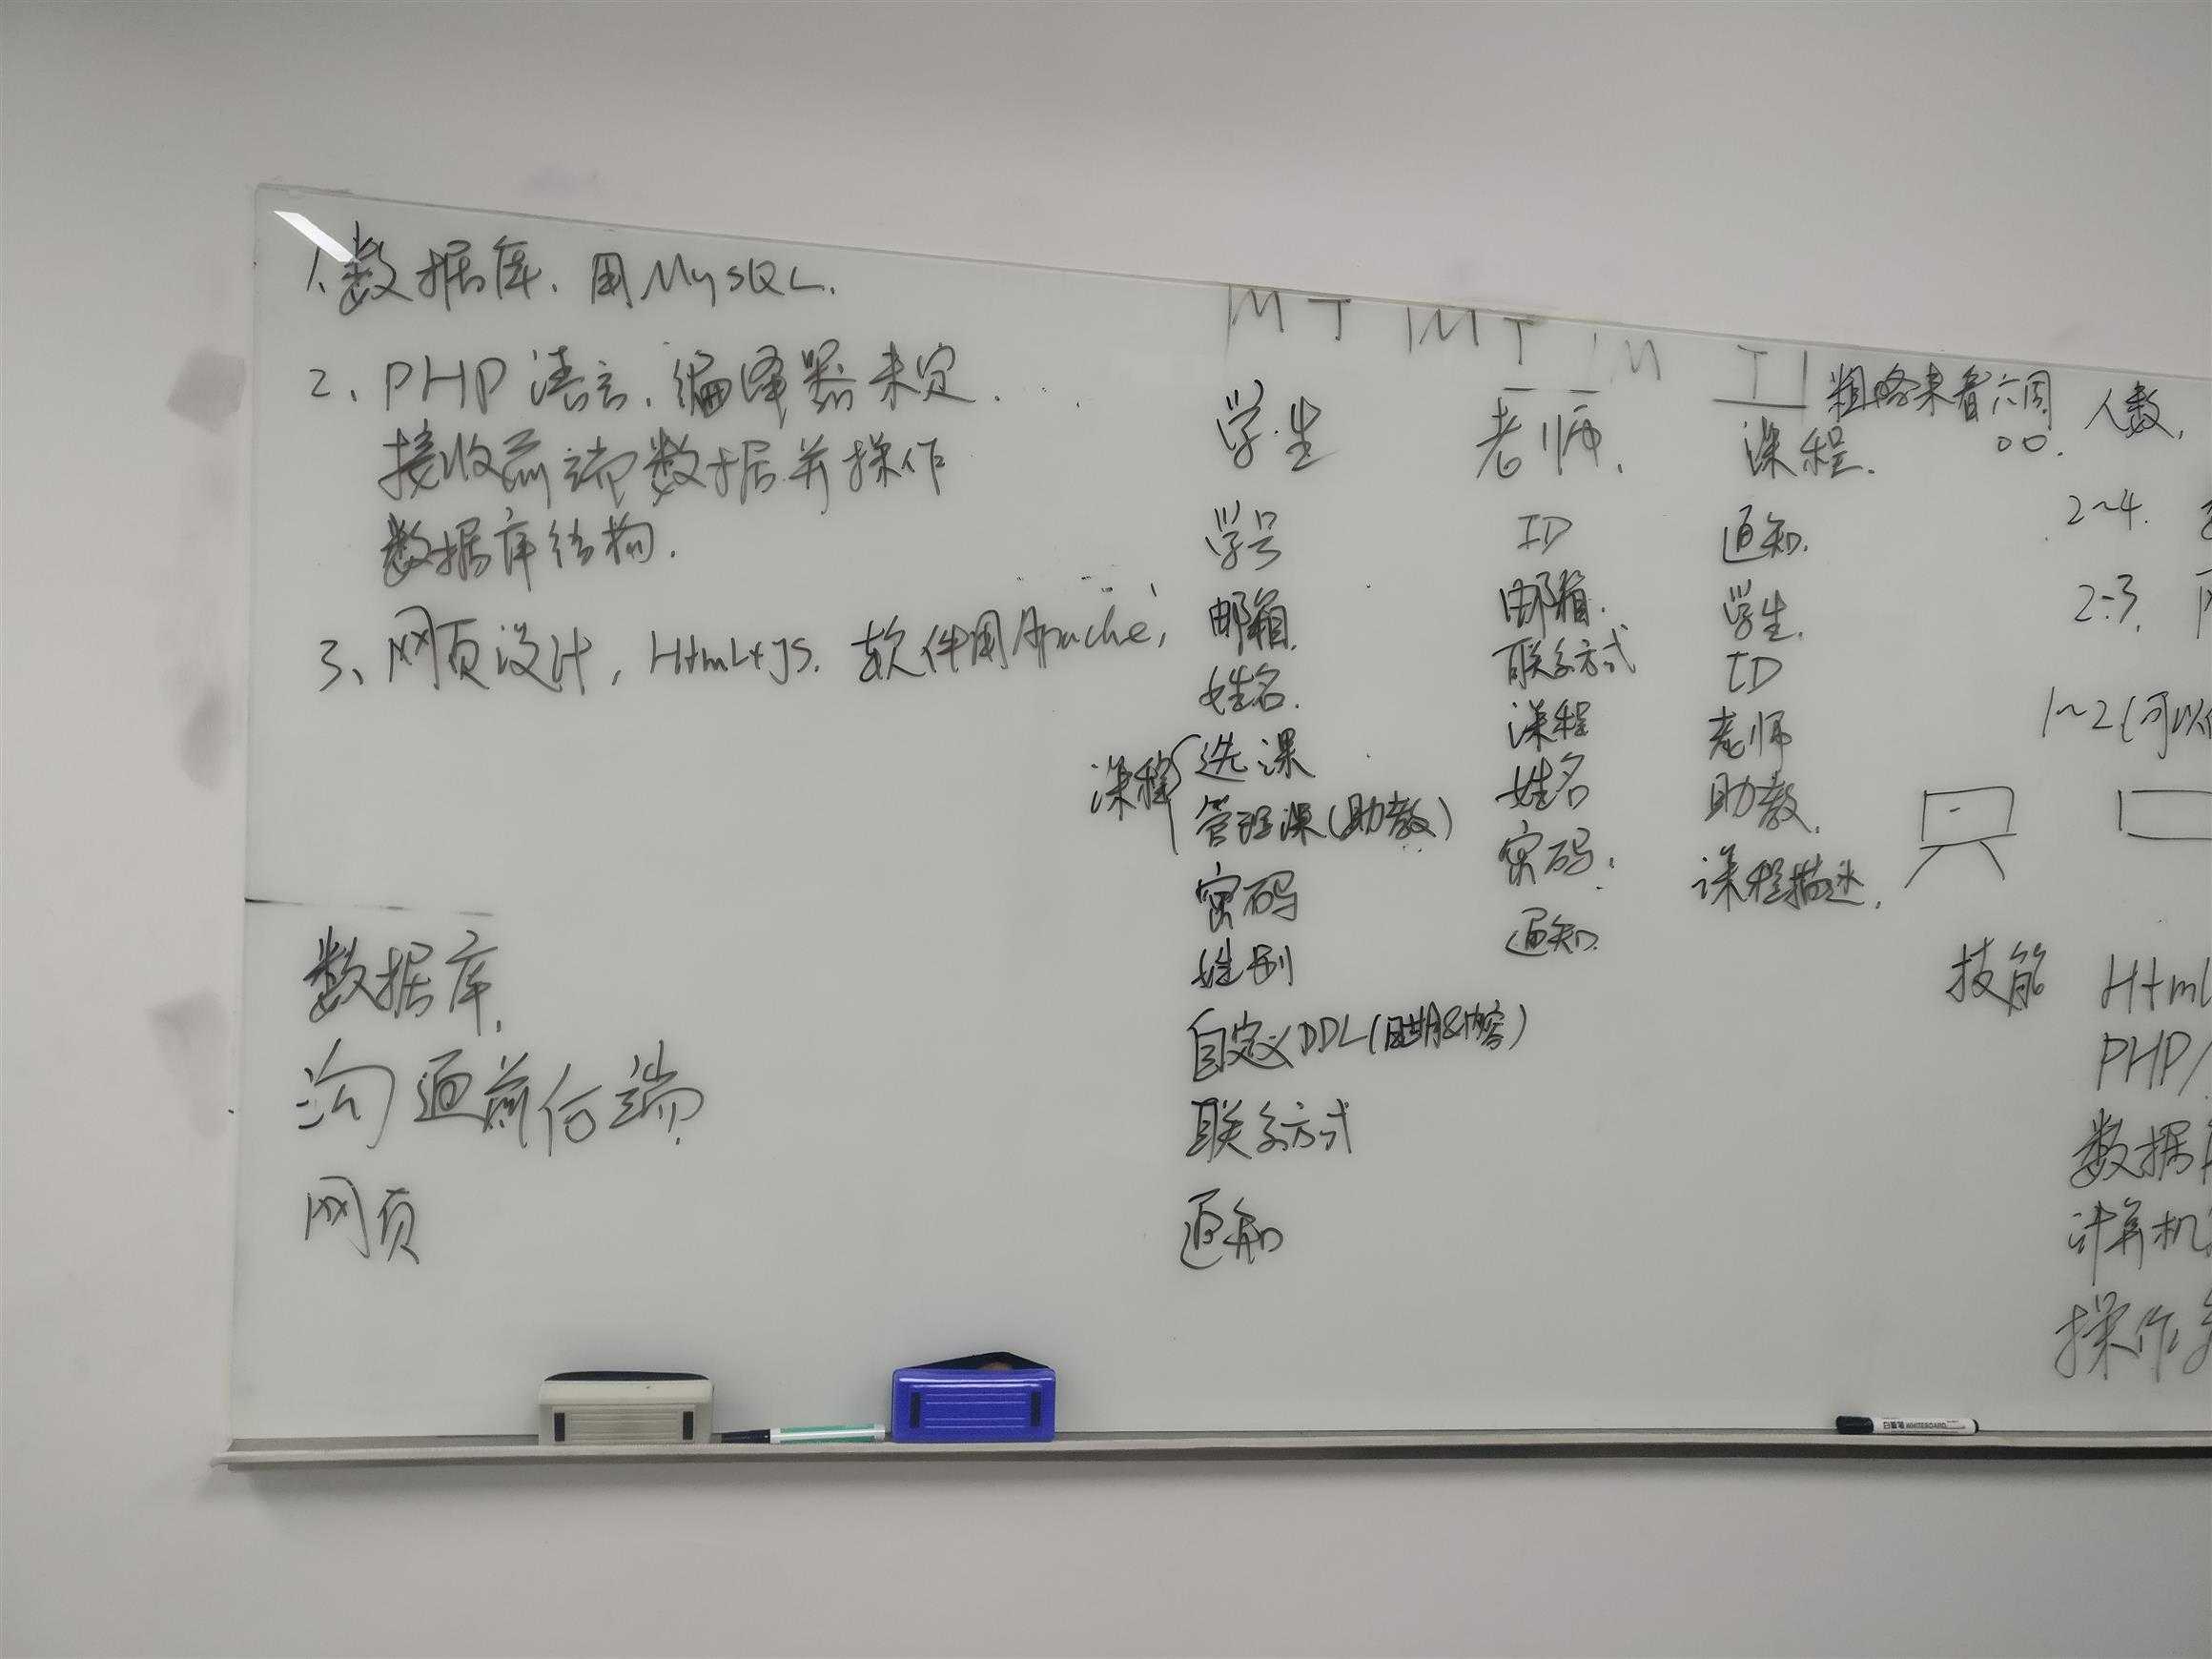 1、数据库、用MySQL.
2、PHP语言、编译器未定.
接收前端数据并操作
数据库结构.
3、网页设计, Html+JS. 软件用Apache,
数据库,
沟通前后端
网页
M T M T M T
学生
学号
邮箱.
姓名.
课程
选课
管理课(助教)
密码
性别
自定义DDL(日期&内容)
联系方式
通知
老师.
ID
邮箱.
联系方式
课程
姓名
密码.
通知.
课程.
通知.
学生.
ID
老师
助教.
课程描述.
粗略来看六周
人数,
2~4.
2~3.
1~2(可以
技能
Html
PHP/
数据
计算机
操作
WHITEBOARD